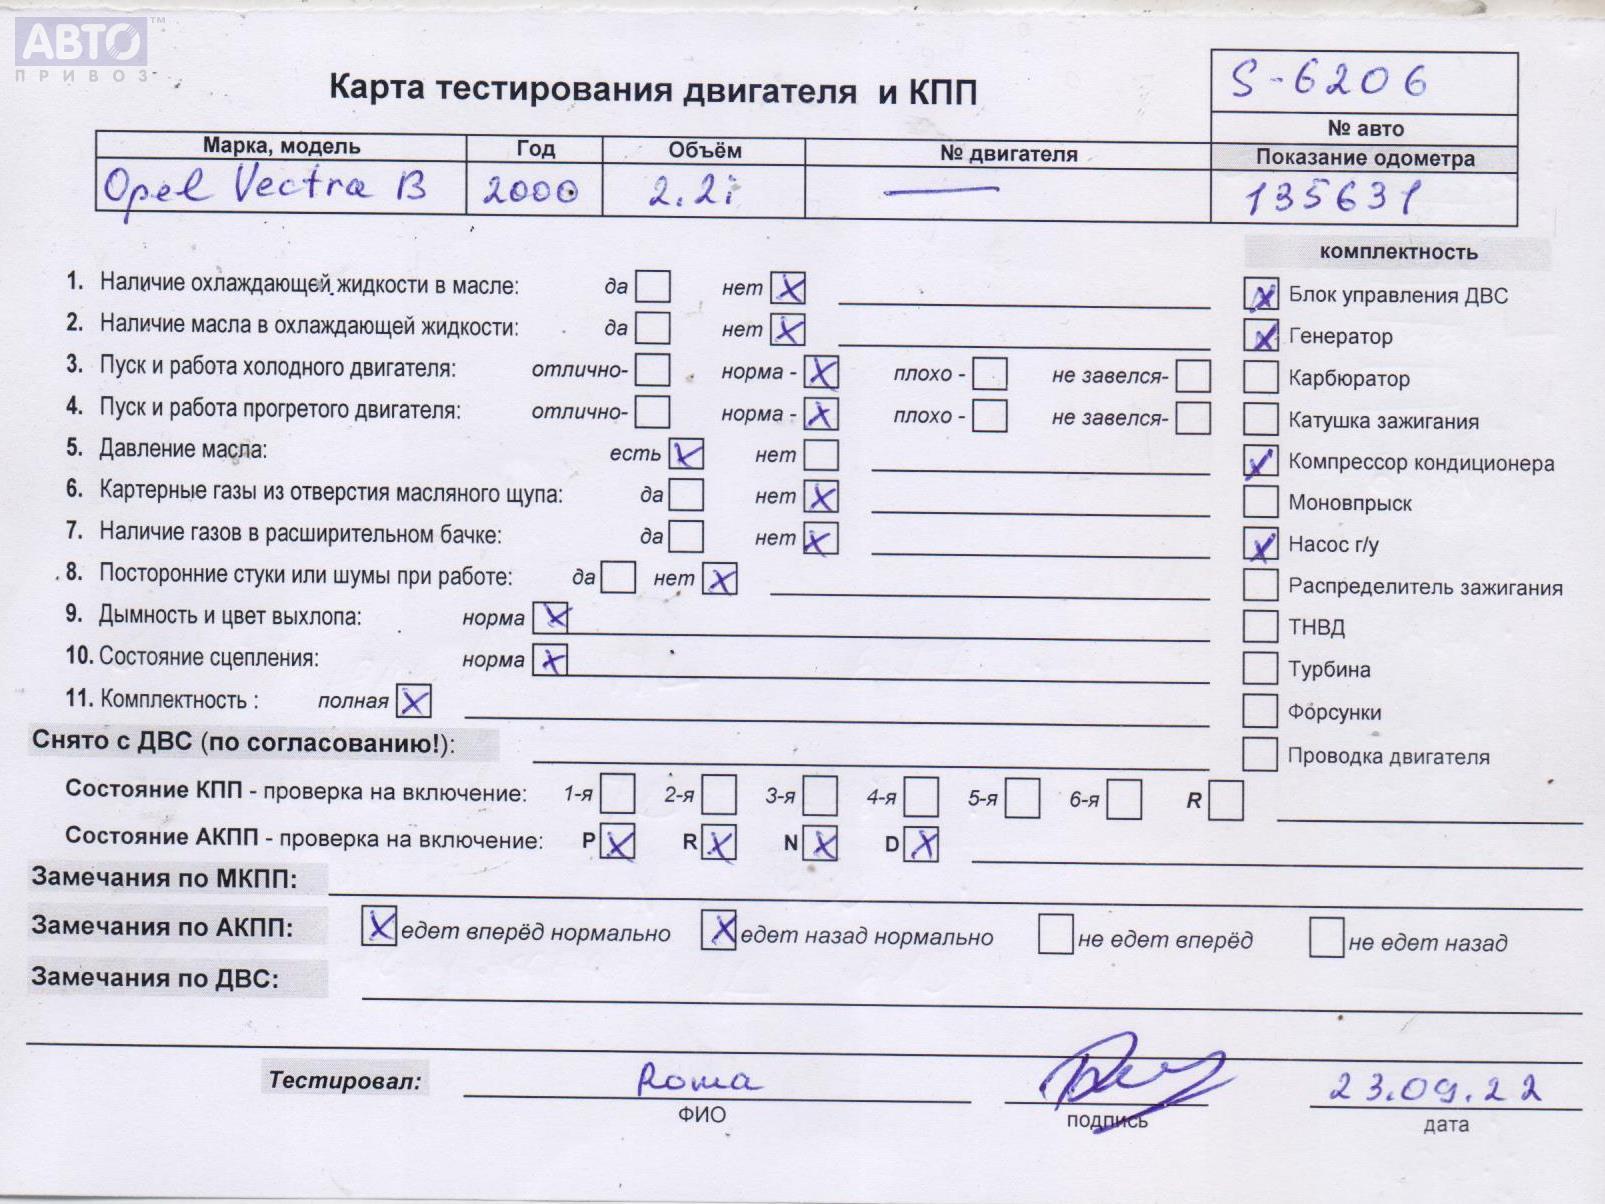 АВТО™
ПРИВОЗ
Карта тестирования двигателя и КПП
S-6206
№ авто
Марка, модель Год Объём № двигателя Показание одометра
Opel Vectra B 2000 2.2i — 135631
комплектность
1. Наличие охлаждающей жидкости в масле: да нет X
Блок управления ДВС
2. Наличие масла в охлаждающей жидкости: да нет X
Генератор
3. Пуск и работа холодного двигателя: отлично- норма - X плохо - не завелся-
Карбюратор
4. Пуск и работа прогретого двигателя: отлично- норма - X плохо - не завелся-
Катушка зажигания
5. Давление масла: есть X нет
Компрессор кондиционера
6. Картерные газы из отверстия масляного щупа: да нет X
Моновпрыск
7. Наличие газов в расширительном бачке: да нет X
Насос г/у
8. Посторонние стуки или шумы при работе: да нет X
Распределитель зажигания
9. Дымность и цвет выхлопа: норма X
ТНВД
10. Состояние сцепления: норма X
Турбина
11. Комплектность : полная X
Форсунки
Снято с ДВС (по согласованию!):
Проводка двигателя
Состояние КПП - проверка на включение: 1-я 2-я 3-я 4-я 5-я 6-я R
Состояние АКПП - проверка на включение: P X R X N X D X
Замечания по МКПП:
Замечания по АКПП: X едет вперёд нормально X едет назад нормально не едет вперёд не едет назад
Замечания по ДВС:
Тестировал: Roma 23.09.22
ФИО подпись дата